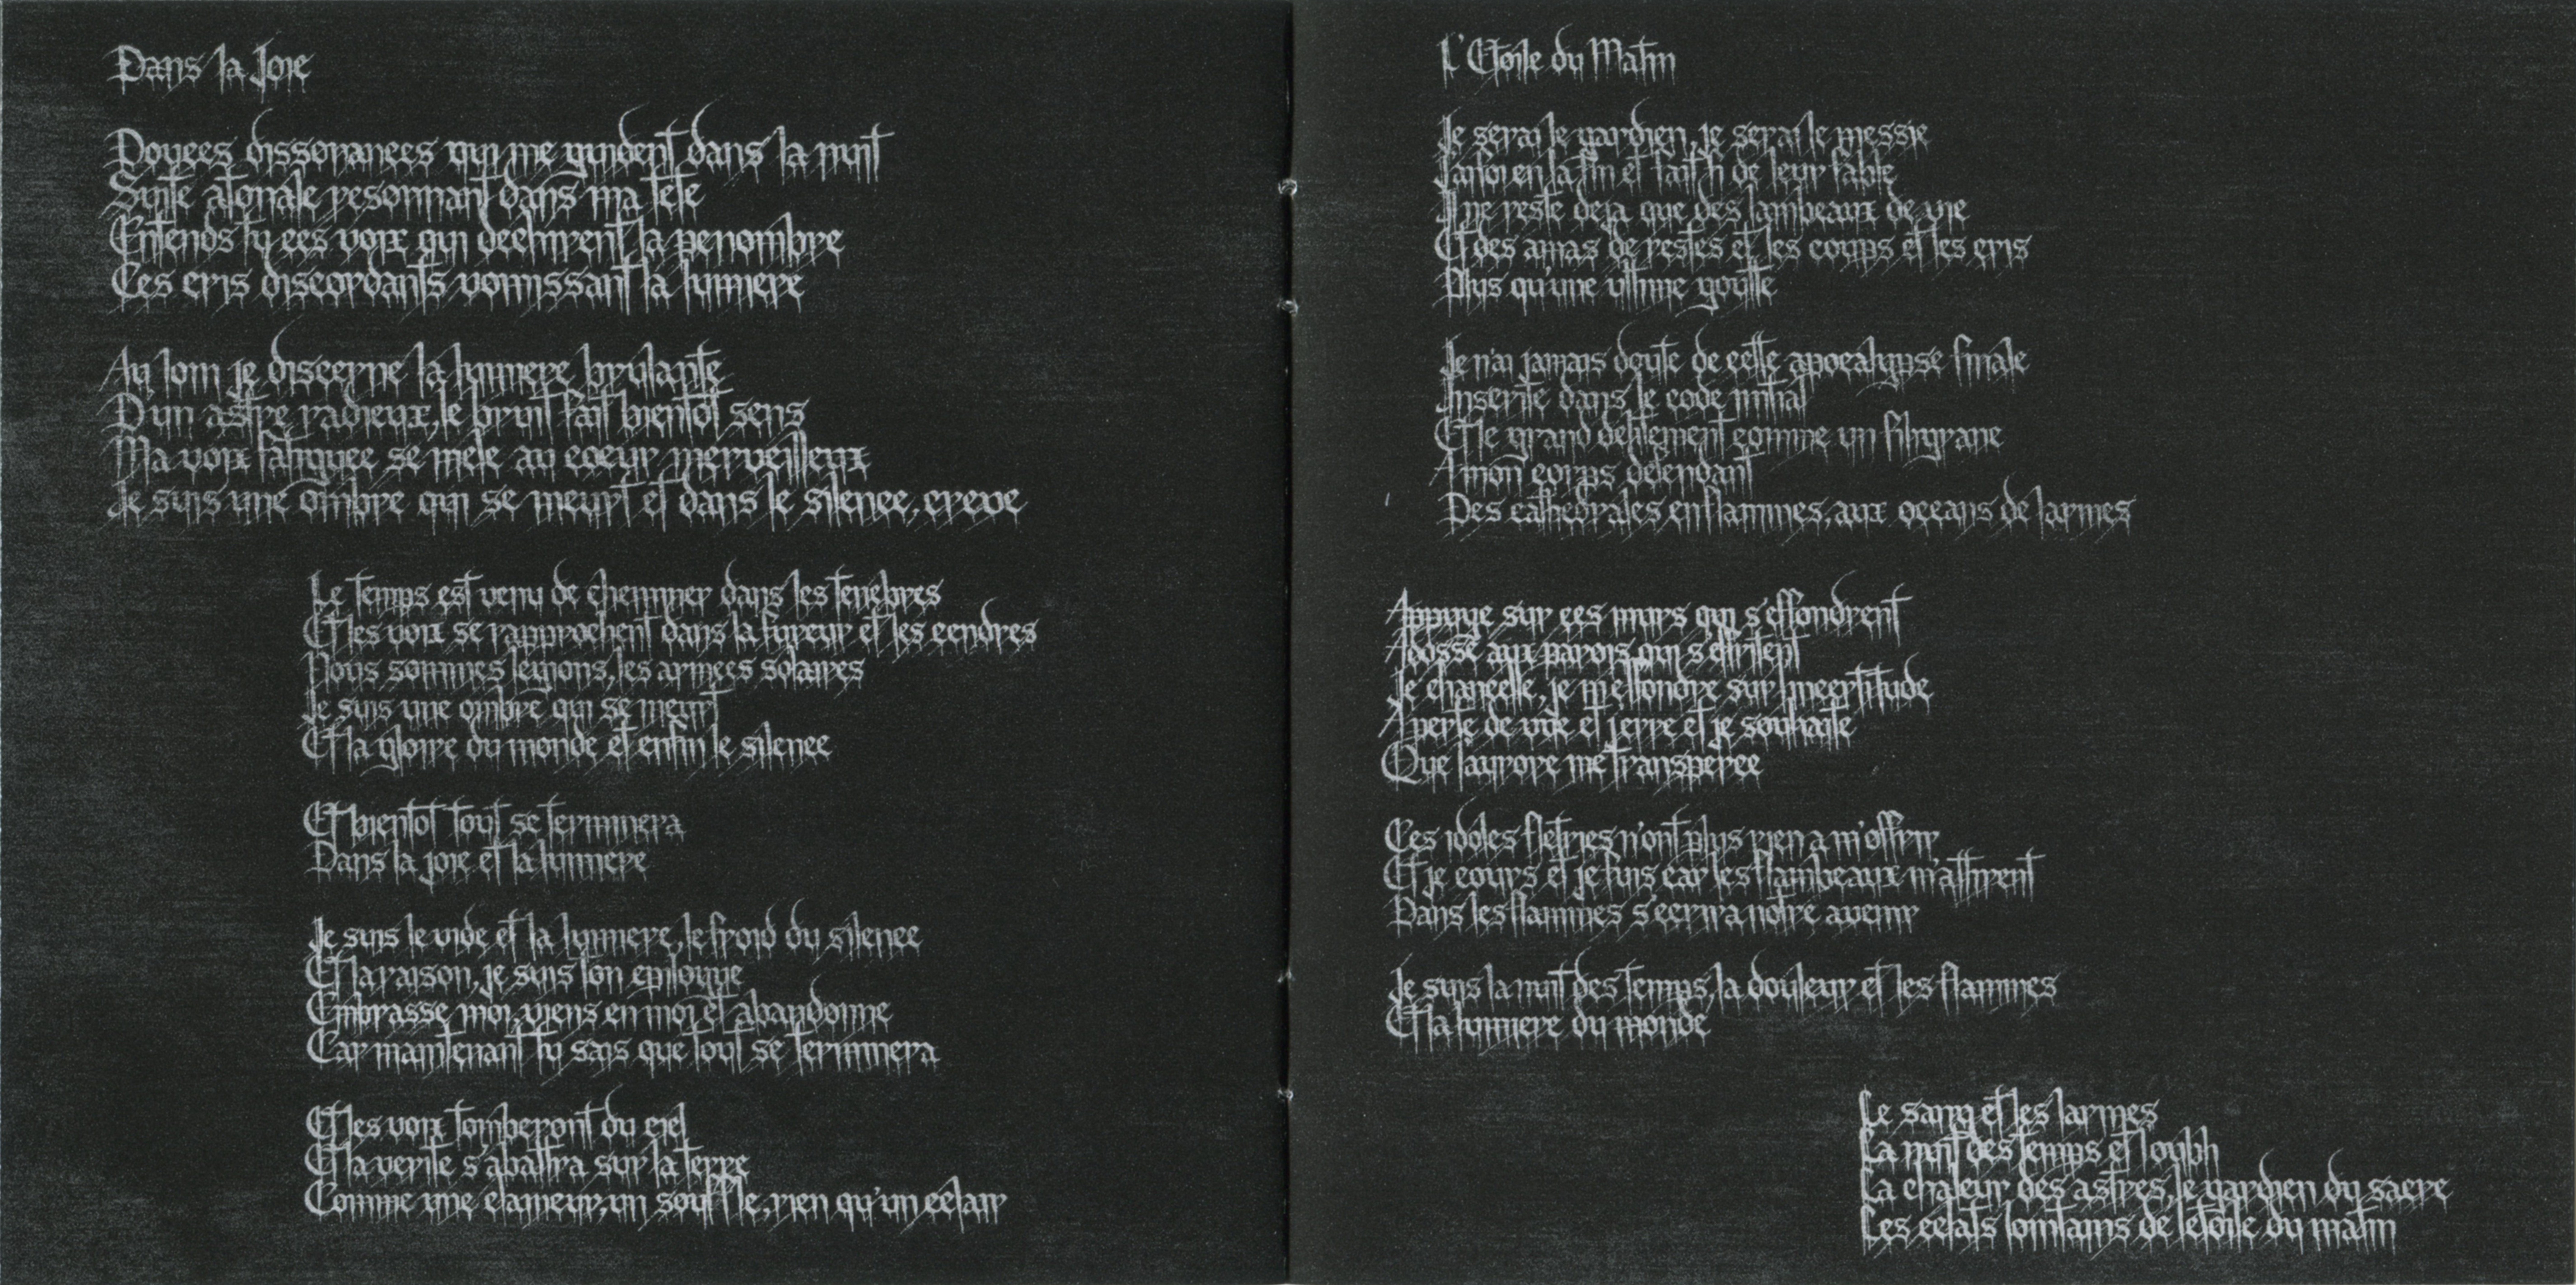 Dans la Joie
Douces dissonances qui me guident dans la nuit
Suite atonale resonnant dans ma tete
Entends tu ces voix qui dechirent la penombre
Ces cris discordants vomissant la lumiere
Au loin je discerne la lumiere brulante
D'un astre radieux, le bruit fait bientot sens
Ma voix fatiguee se mele au coeur merveilleux
Je suis une ombre qui se meurt et dans le silence, creve
Le temps est venu de cheminer dans les tenebres
Et les voix se rapprochent dans la fureur et les cendres
Nous sommes legions, les armees solaires
Je suis une ombre qui se meurt
Et la gloire du monde et enfin le silence
Et bientot tout se terminera
Dans la joie et la lumiere
Je suis le vide et la lumiere, le froid du silence
Et la raison, je suis ton epilogue
Embrasse moi, viens en moi et abandonne
Car maintenant tu sais que tout se terminera
Et les voix tomberont du ciel
Et la verite s'abattra sur la terre
Comme une clameur, un souffle, rien qu'un eclair
L'Etoile du Matin
Je serai le gardien, je serai le messie
J'ai foi en la fin et fait fi de leur fable
Il ne reste deja que des lambeaux de vie
Et des amas de restes et les corps et les cris
Plus qu'une ultime goutte
Je n'ai jamais doute de cette apocalypse finale
Inscrite dans le code initial
Et le grand delitement comme un filigrane
A mon corps defendant
Des cathedrales en flammes, aux oceans de larmes
Appuye sur ces murs qui s'effondrent
Adosse aux parois qui s'effritent
Je chancelle, je m'effondre sur l'incertitude
A perte de vue et j'erre et je souhaite
Que l'aurore me transperce
Ces idoles fletries n'ont plus rien a m'offrir
Et je cours et je fuis car les flambeaux m'attirent
Dans les flammes s'ecrira notre avenir
Je suis la nuit des temps, la douleur et les flammes
Et la lumiere du monde
Le sang et les larmes
La nuit des temps et l'oubli
La chaleur des astres, le gardien du sacre
Les eclats lointains de l'etoile du matin